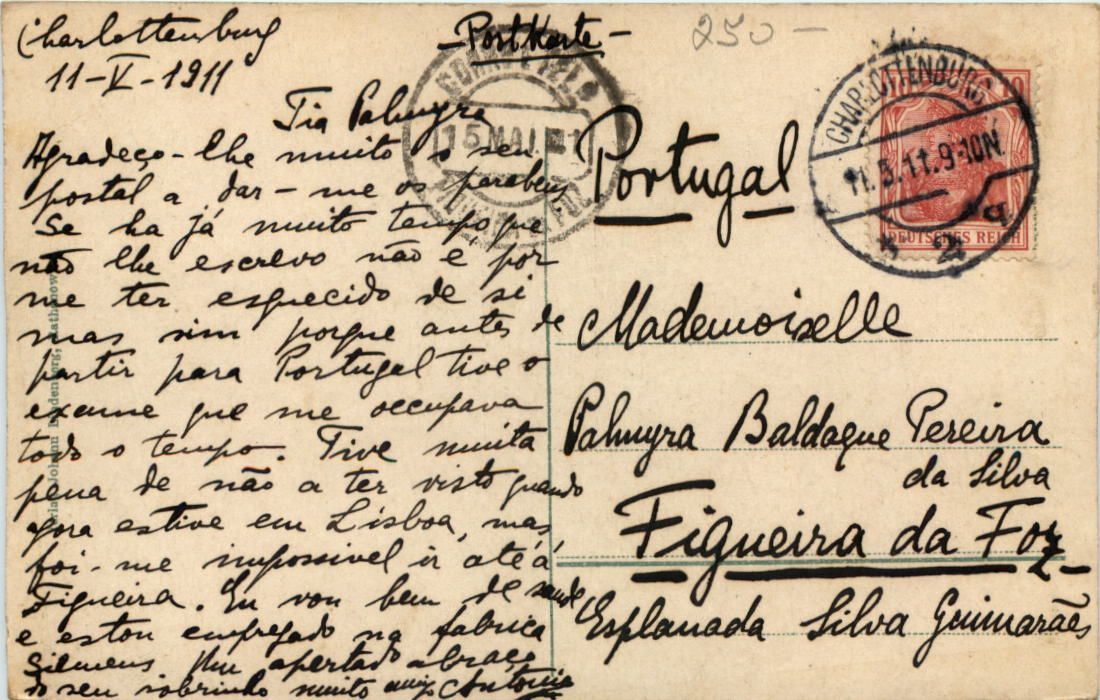 Charlottenburg
11-V-1911
- PostKarte -
250 -
Tia Palmyra
Agradeço-lhe muito o seu
postal a dar-me os parabens
Se ha já muito tempo que
não lhe escrevo não é por
me ter esquecido de si
mas sim porque antes de
partir para Portugal tive o
exame que me occupava
todo o tempo. Tive muita
pena de não a ter visto quando
agora estive em Lisboa, mas
foi-me impossivel ir até á
Figueira. Eu vou bem de saude,
e estou empregado na fabrica
Siemens Um apertado abraço
do seu sobrinho muito amigo Antonio
15 MAI
CHARLOTTENBURG
11.5.11.9-10N.
* 2 q
10
DEUTSCHES REICH
Portugal
Mademoiselle
Palmyra Baldaque Pereira
da Silva
Figueira da Foz -
Esplanada Silva Guimarães
Johann